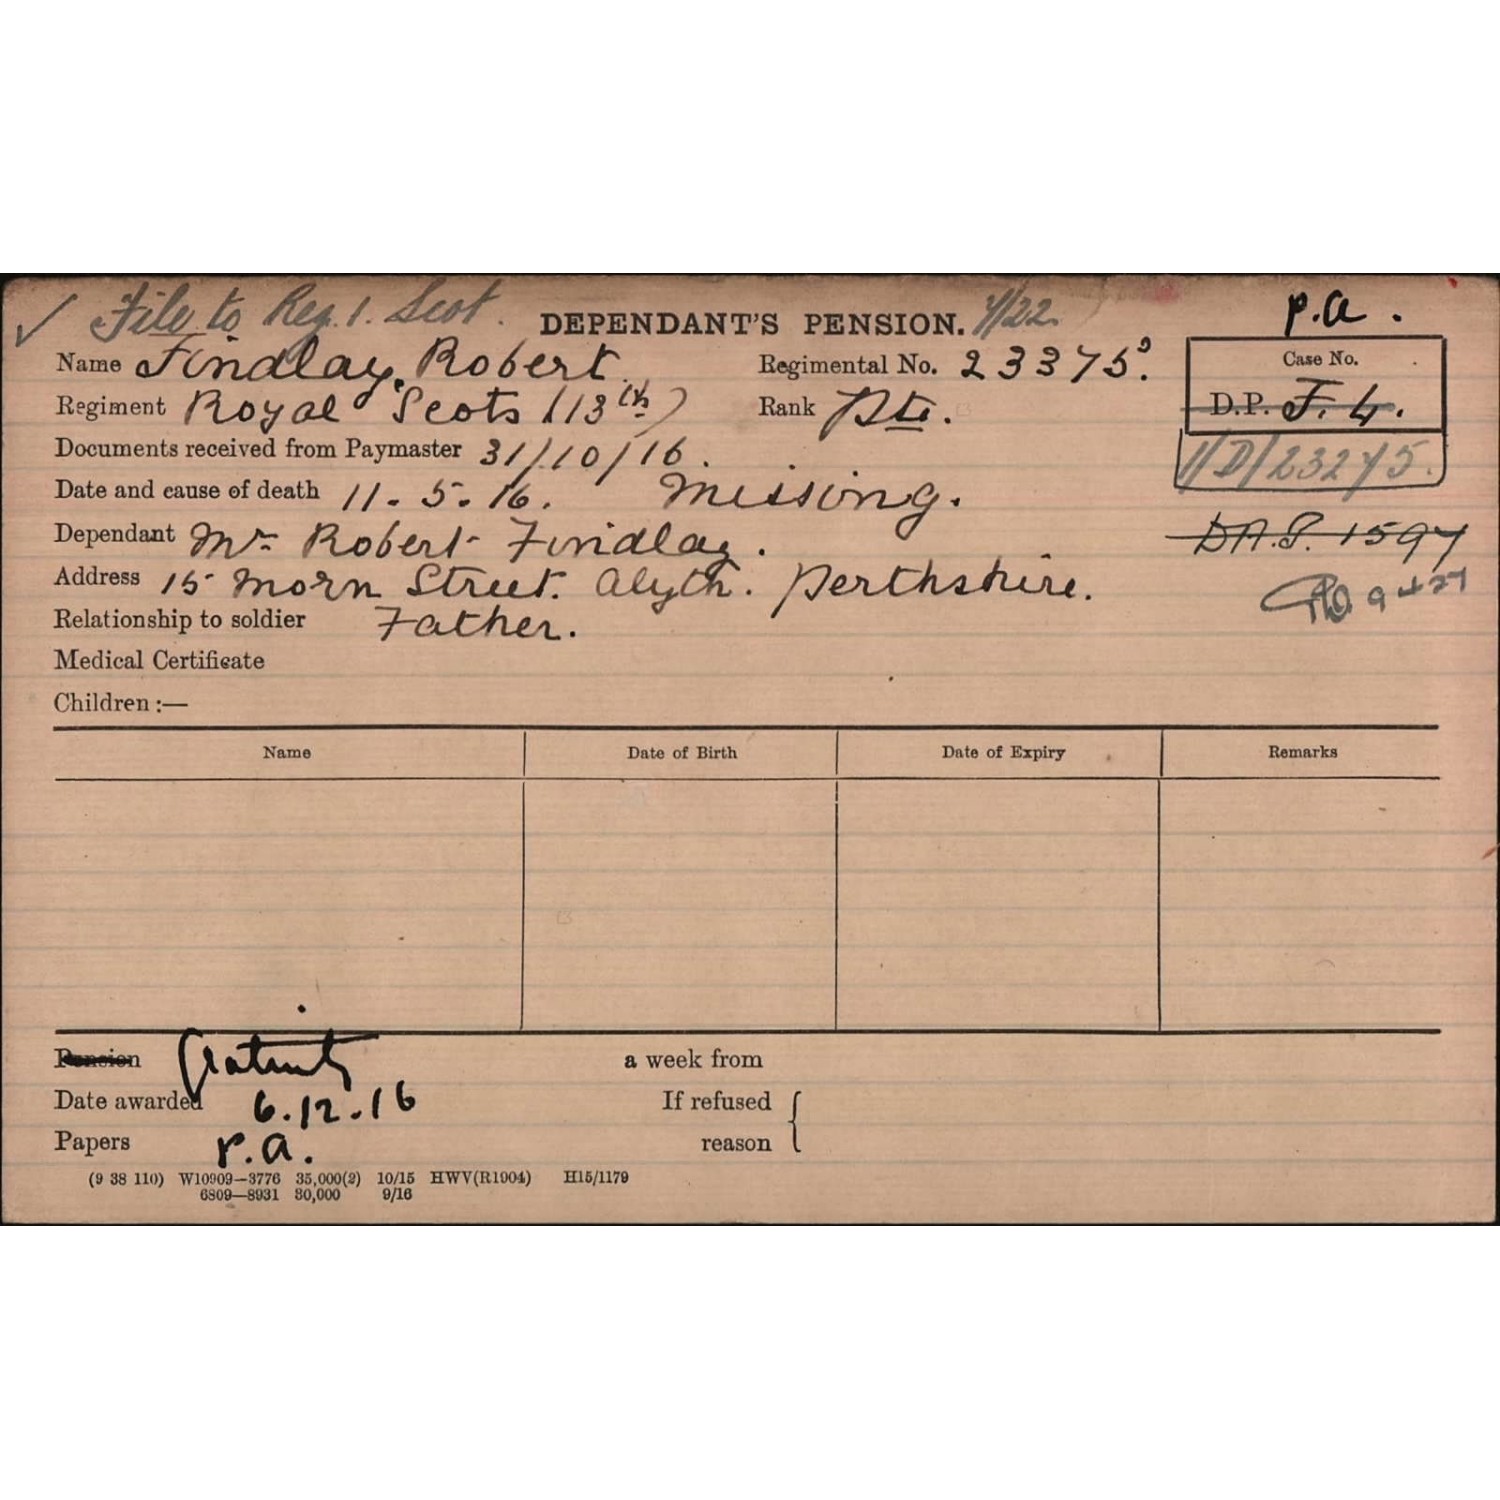 ✓ File to Reg. 1. Scot.
DEPENDANT'S PENSION. 4/22
P.A.
Name Findlay, Robert.
Regimental No. 23375.
Case No.
Regiment Royal Scots (13th)
Rank Pte.
D.P. F. 4.
Documents received from Paymaster 31/10/16.
1/D/23275.
Date and cause of death 11. 5. 16. Missing.
Dependant Mr Robert Findlay.
D.A.P. 1597
Address 15 Morn Street. Alyth. Perthshire.
Relationship to soldier Father.
Medical Certificate
Children :—
Name Date of Birth Date of Expiry Remarks
Pension Gratuity a week from
Date awarded 6.12.16 If refused
Papers P.A. reason
(9 38 110) W10909—3776 35,000(2) 10/15 HWV(R1904) H15/1179
6809—8931 30,000 9/16